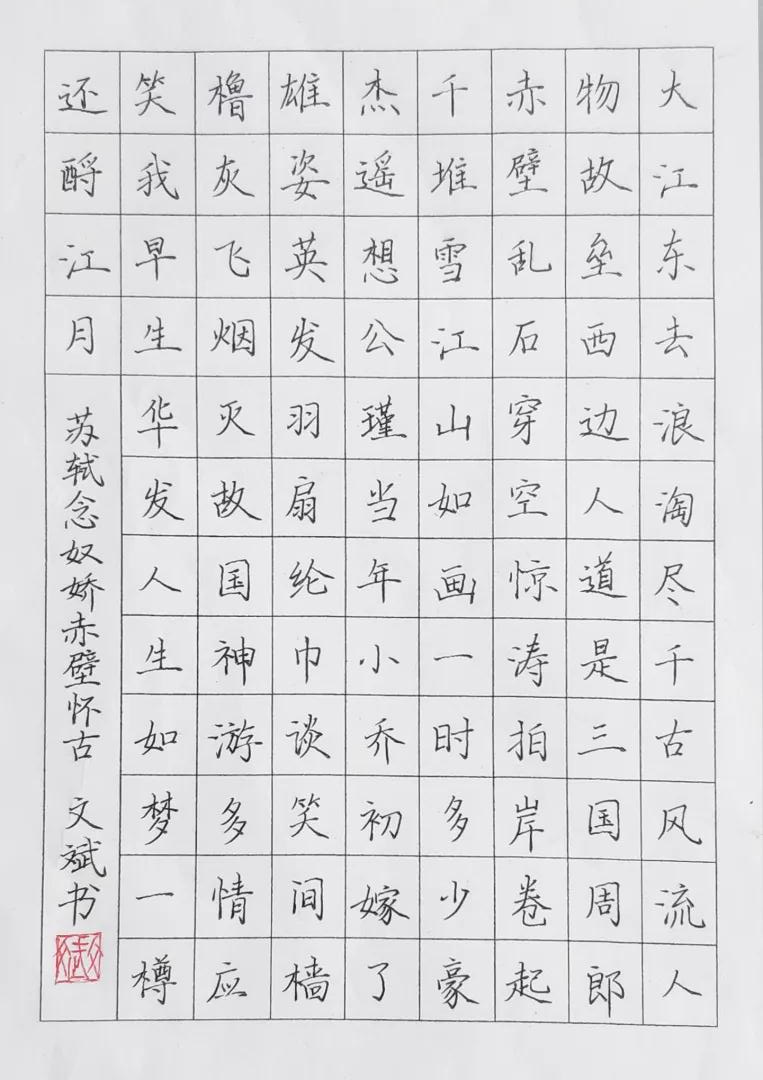 大江东去浪淘尽千古风流人
物故垒西边人道是三国周郎
赤壁乱石穿空惊涛拍岸卷起
千堆雪江山如画一时多少豪
杰遥想公瑾当年小乔初嫁了
雄姿英发羽扇纶巾谈笑间樯
橹灰飞烟灭故国神游多情应
笑我早生华发人生如梦一樽
还酹江月
苏轼念奴娇赤壁怀古 文斌书